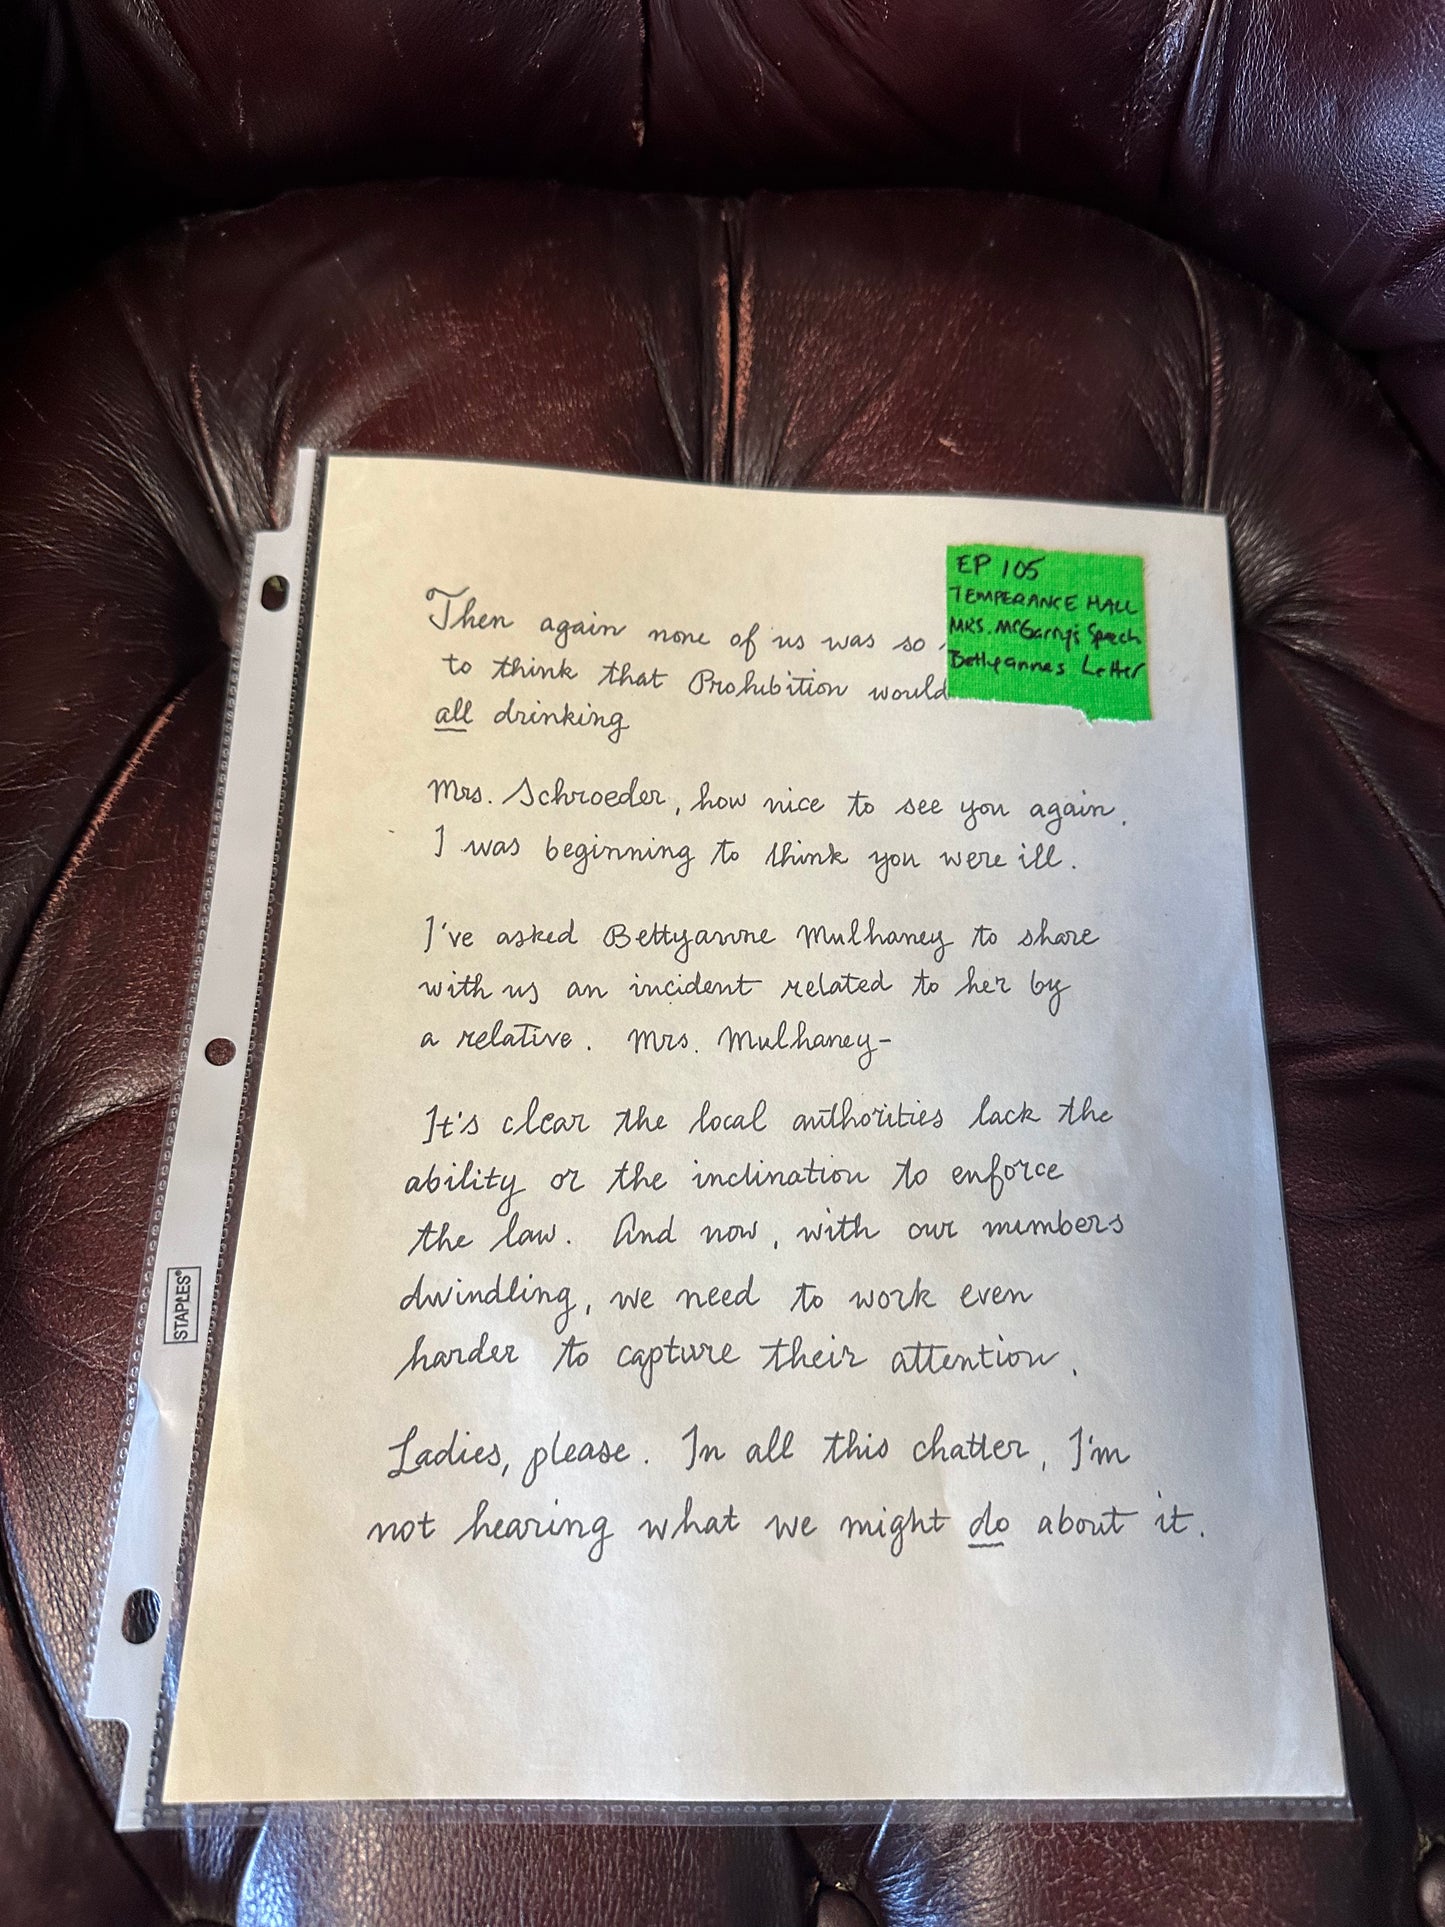 EP 105
TEMPERANCE HALL
MRS. McGarry's Speech
Bettyanne's Letter
Then again none of us was so
to think that Prohibition would
all drinking
Mrs. Schroeder, how nice to see you again.
I was beginning to think you were ill.
I've asked Bettyanne Mulhaney to share
with us an incident related to her by
a relative. Mrs. Mulhaney-
It's clear the local authorities lack the
ability or the inclination to enforce
the law. And now, with our members
dwindling, we need to work even
harder to capture their attention.
Ladies, please. In all this chatter, I'm
not hearing what we might do about it.
STAPLES®